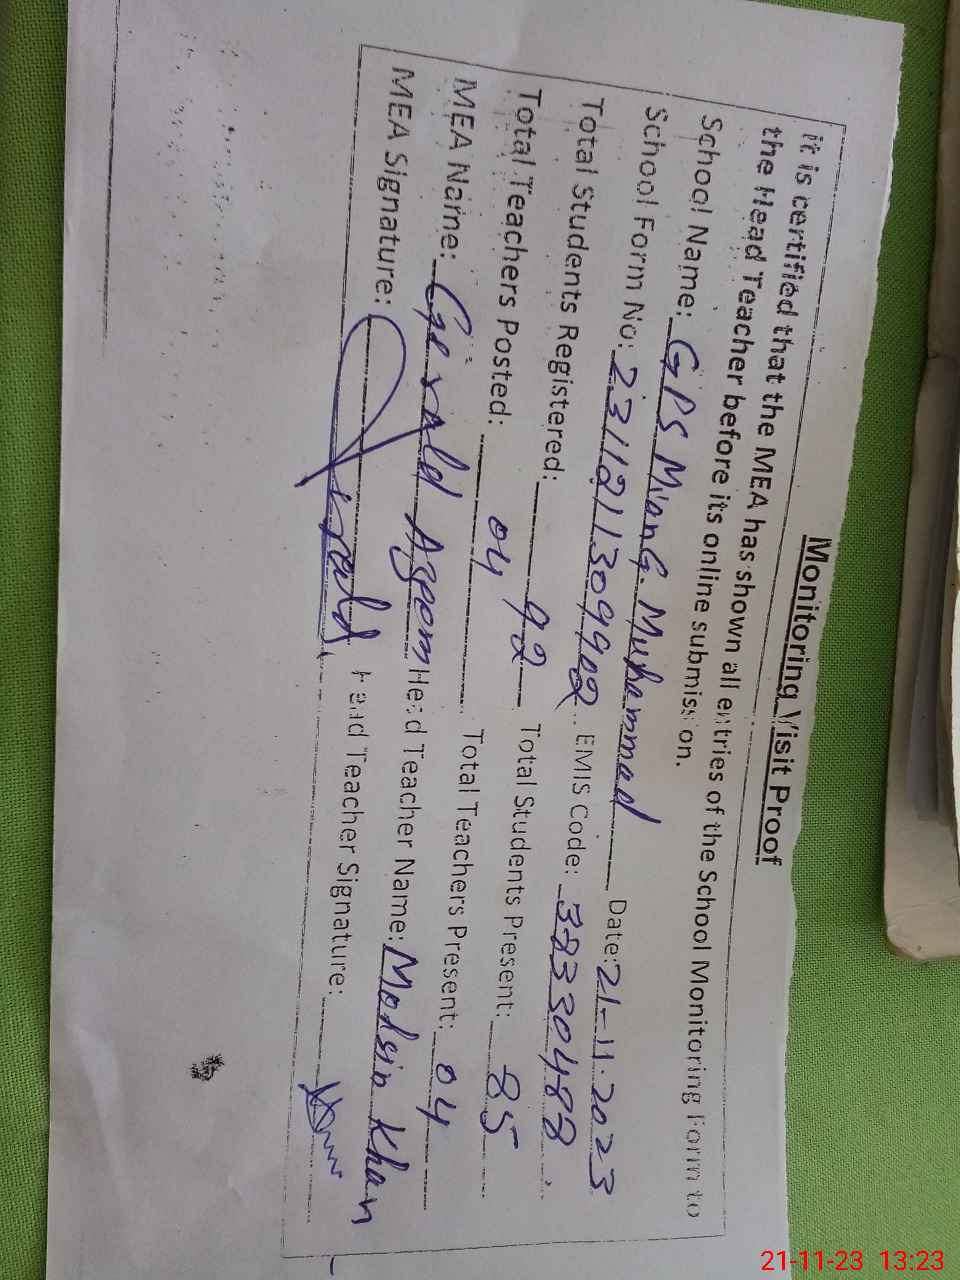 Monitoring Visit Proof
it is certified that the MEA has shown all entries of the School Monitoring Form to
the Head Teacher before its online submission.
School Name: GPS Mian G. Muhammad Date: 21-11-2023
School Form No: EMIS Code: 38330488
Total Students Registered: 92 Total Students Present: 85
Total Teachers Posted: 04 Total Teachers Present: 04
MEA Name: Gerald Azeem Head Teacher Name: Mohsin Khan
MEA Signature: Gerald Head Teacher Signature:
21-11-23 13:23